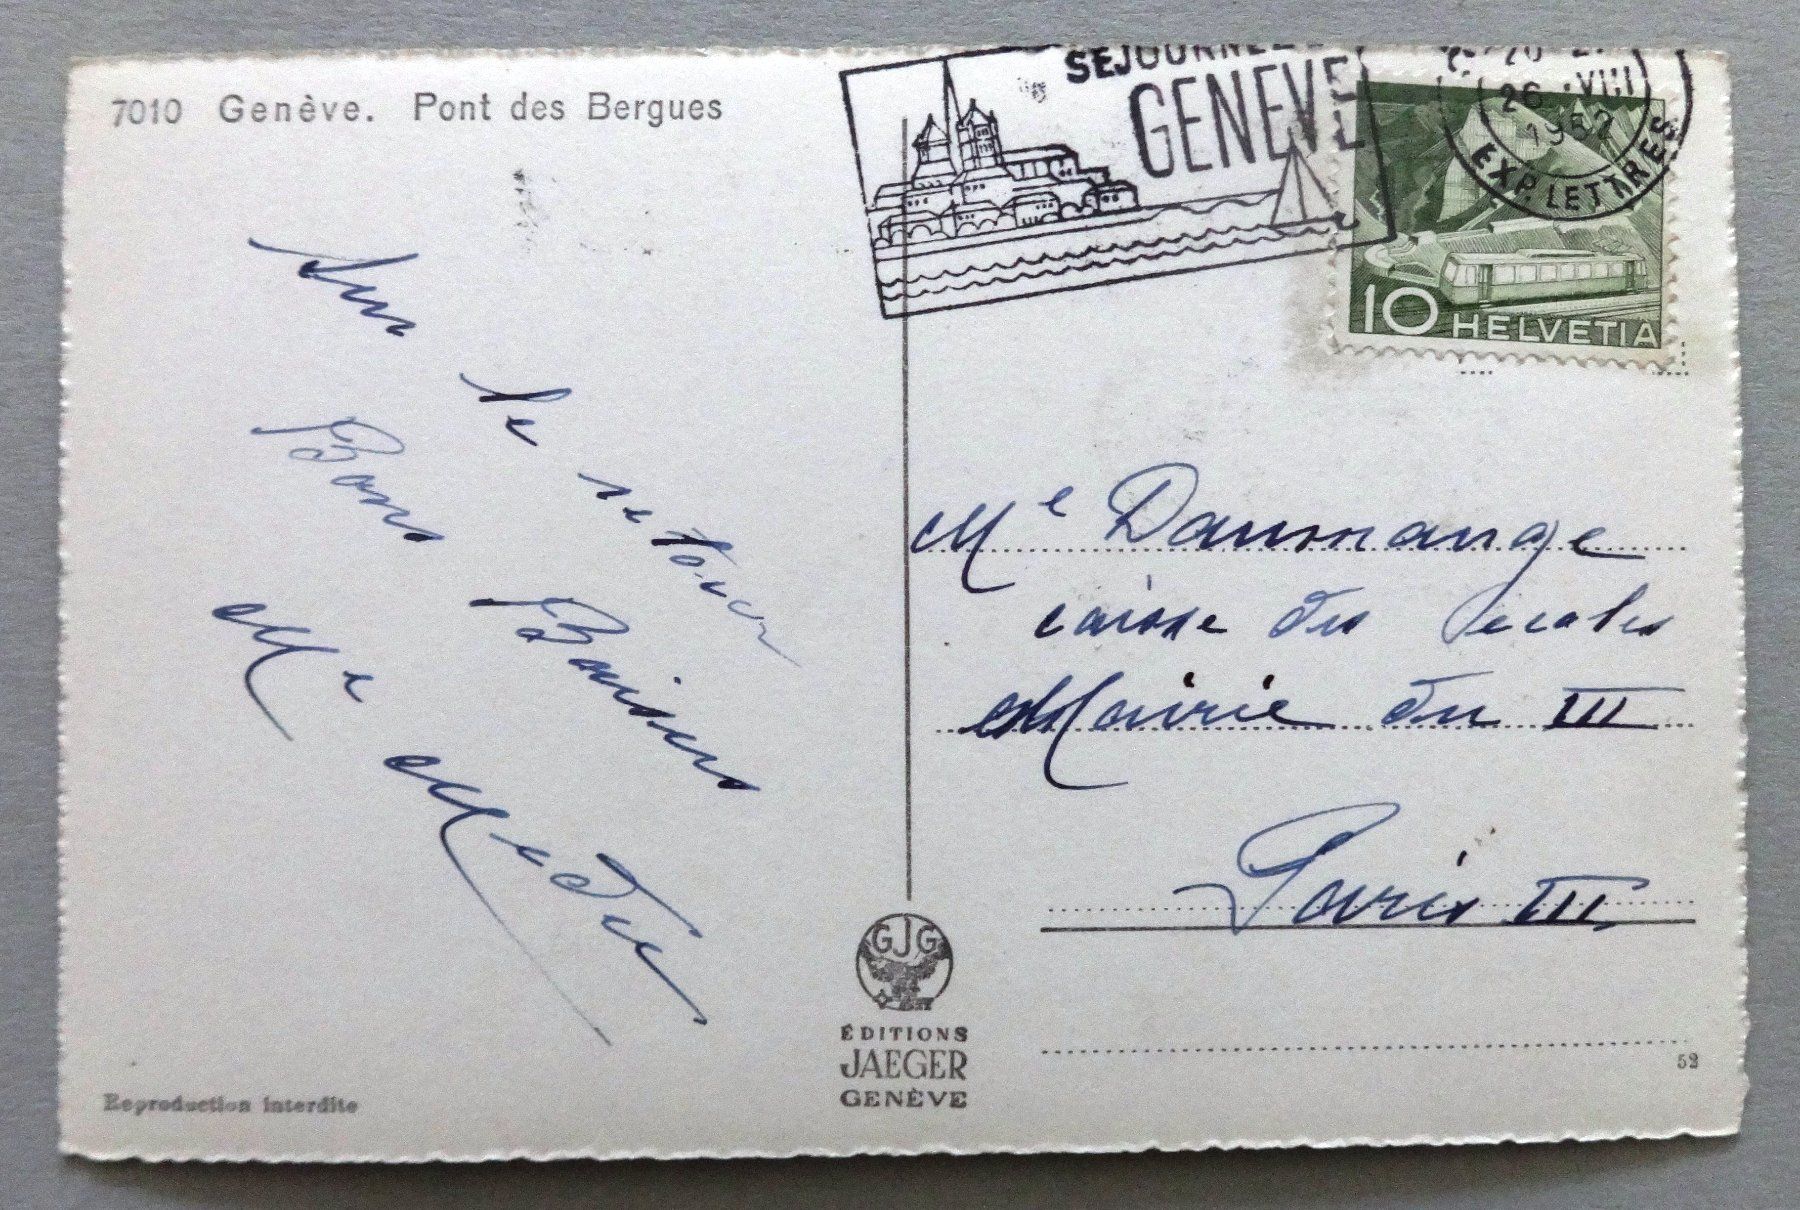 7010 Genève. Pont des Bergues
SEJOURNEZ
GENEVE
26 VIII
1952
EXP. LETTRES
10 HELVETIA
Sur le retour
Bons Baisers
Me
Me Daumange
caisse des écoles
Mairie du III
Paris III
GJG
ÉDITIONS
JAEGER
GENÈVE
52
Reproduction interdite